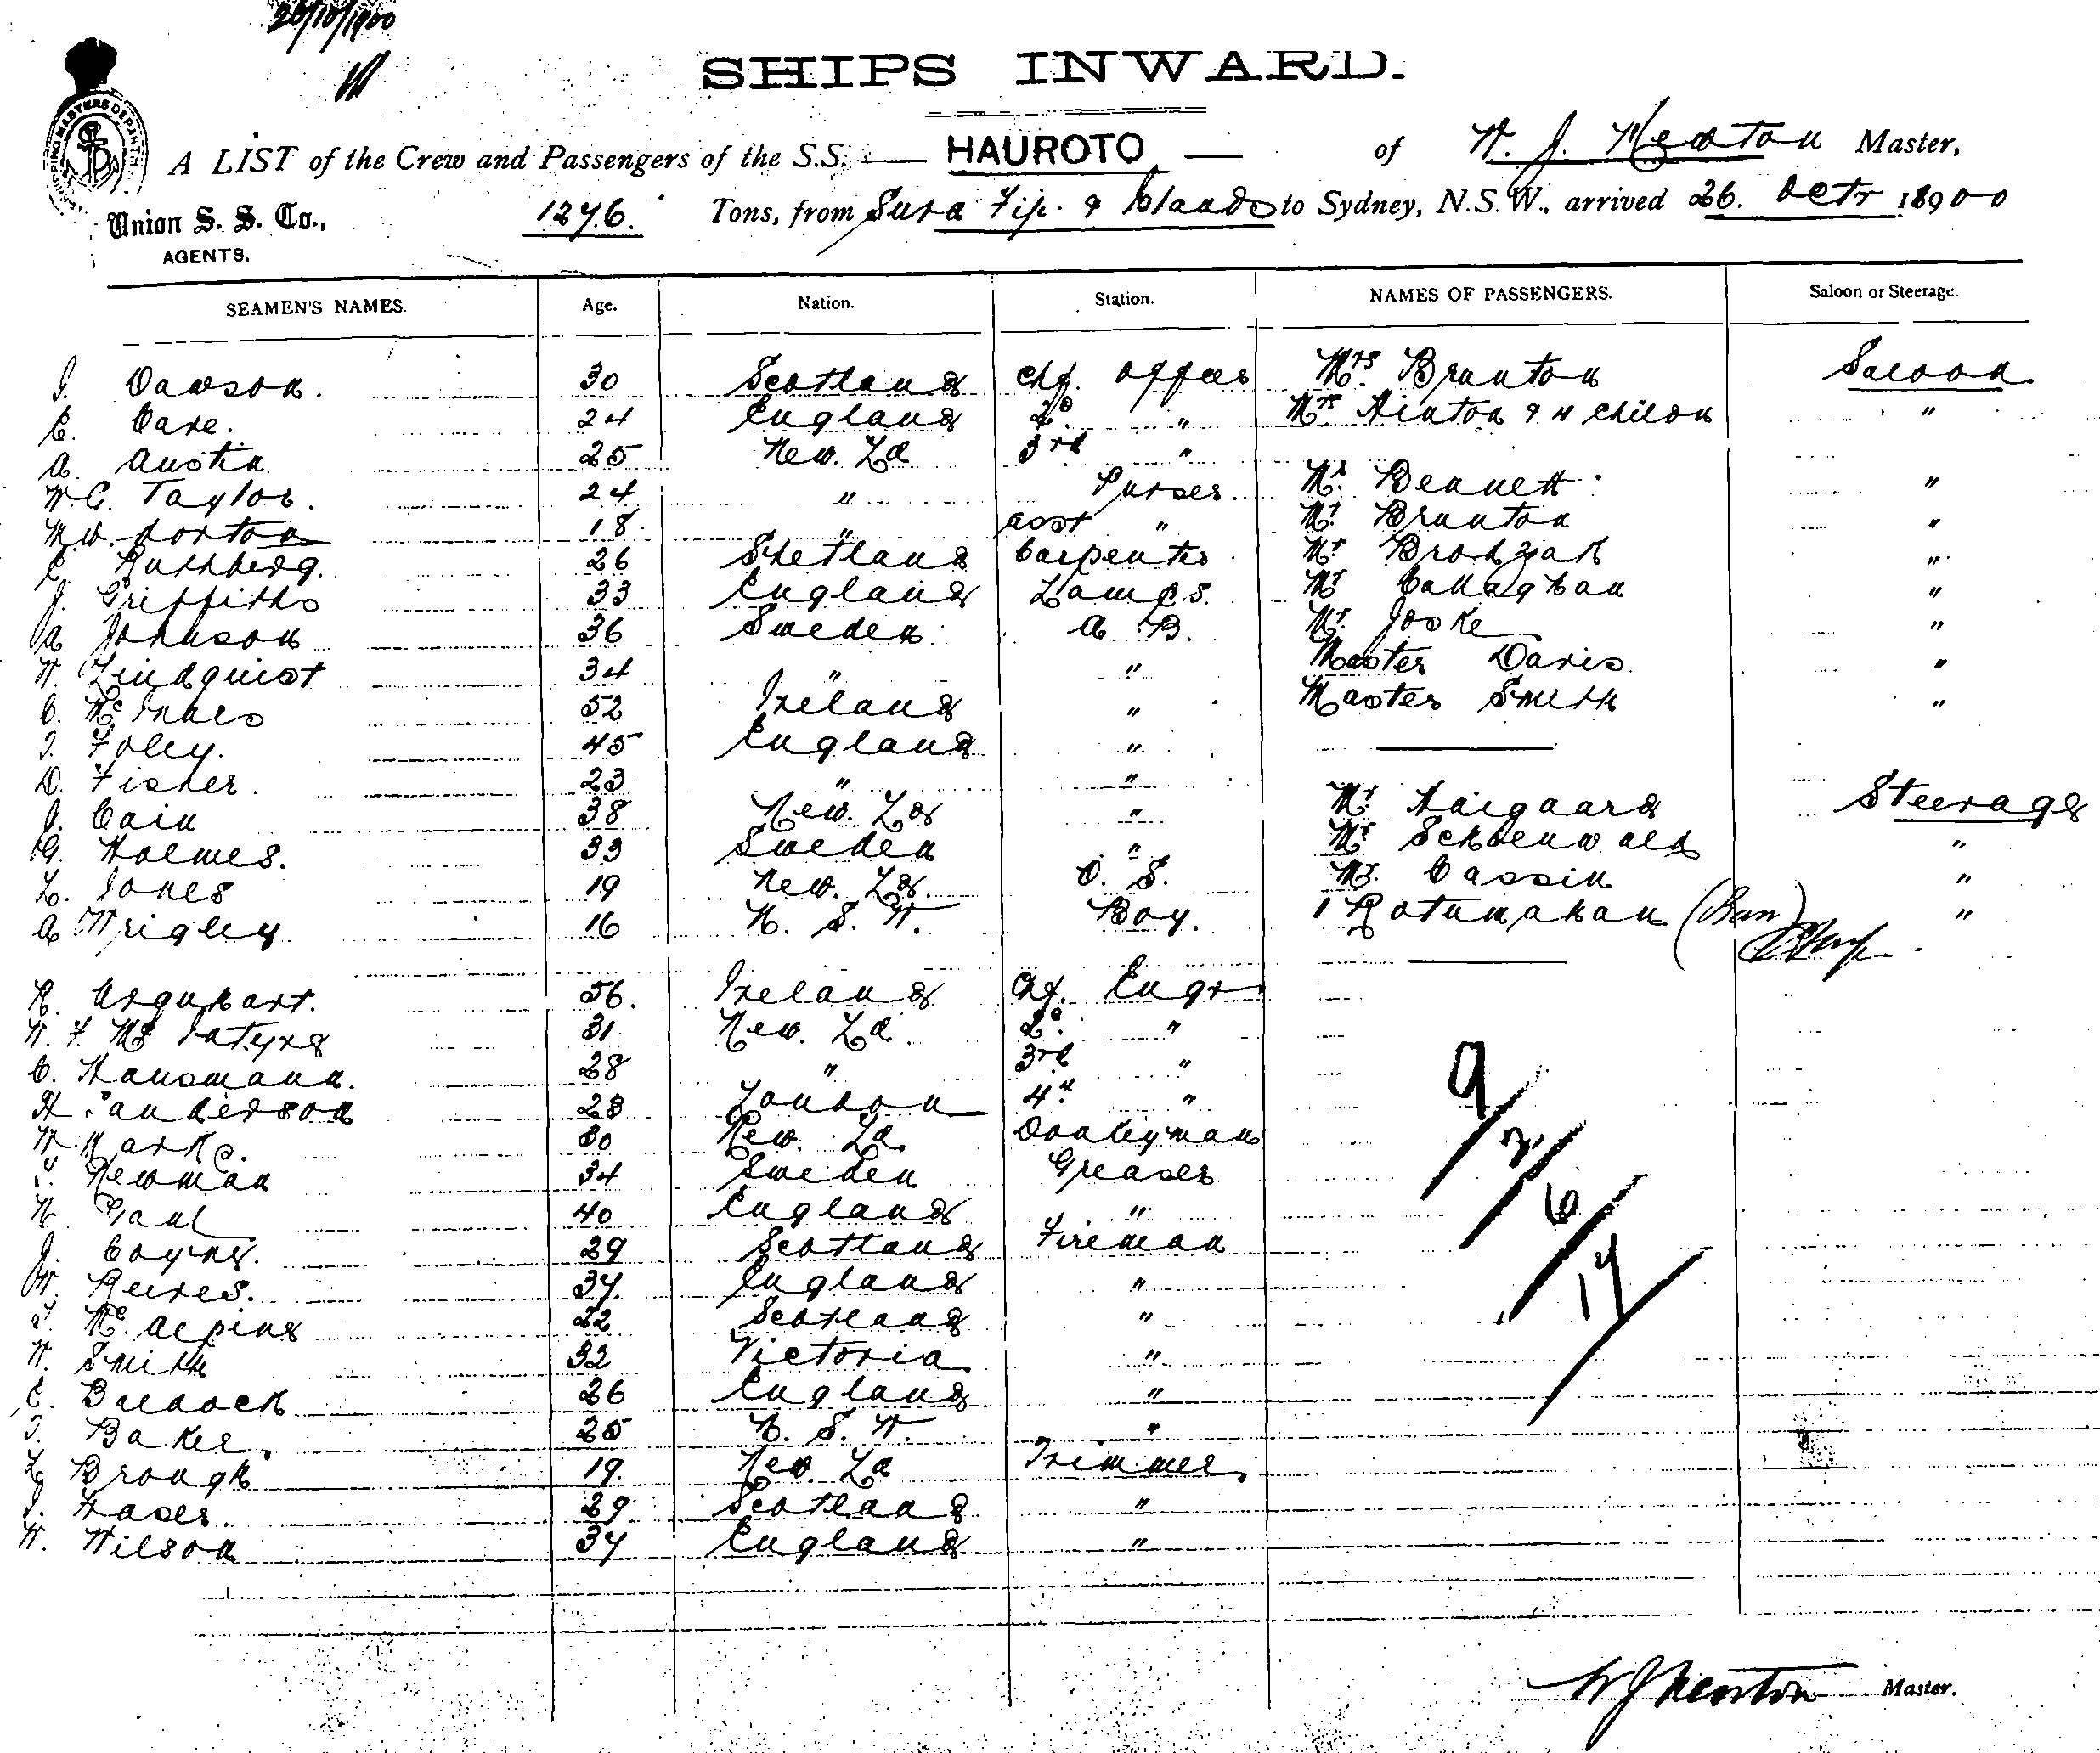 26/10/1900
SHIPS INWARD.
SHIPPING MASTERS DEPARTMENT
A LIST of the Crew and Passengers of the S.S. HAUROTO of W. J. Newton Master,
Union S. S. Co., AGENTS. 1276. Tons, from Suva Fiji & Islands to Sydney, N.S.W., arrived 26. Octr 18900
SEAMEN'S NAMES. Age. Nation. Station. NAMES OF PASSENGERS. Saloon or Steerage.
J. Dawson. 30 Scotland Chf. Officer Mrs Brunton Saloon
C. Care. 24 England 2d " Mrs Hinton & 4 Childn "
A. Austin 25 New. Zd 3rd "
W. C. Taylor. 24 " Purser Mr. Bennett "
M. W. Horton 18 " Asst " Mr. Brunton "
C. Ruthberg. 26 Shetland Carpenter Mr Brodziak "
J. Griffiths 33 England Lamps. Mr Callaghan "
A Johnson 36 Sweden A. B. Mr. Joske "
W. Lindquist 34 " " Master Davis "
C. McInnes 52 Ireland " Master Smith "
T. Foley. 45 England "
D. Fisher. 23 " "
J. Cain 38 New. Zd " Mr. Haigaard Steerage
G. Holmes. 33 Sweden " Mr Schoenwald "
L. Jones 19 New. Zd. O. S. Mr. Cassin "
A Wrigley 16 N. S. W. Boy. 1 Rotumahan "
R. Urquhart. 56. Ireland Chf. Engr
W. F. McIntyre 31 New. Zd 2d "
C. Hansmann. 28 " 3rd "
H Sanderson 28 London 4th "
W Marks. 30 New. Zd. Donkeyman
Newman 34 Sweden Greaser
W. Gaul 40 England "
J. Coyne. 29 Scotland Fireman
W. Reeves. 37. England "
T. McAlpine 22 Scotland "
W. Smith 32 Victoria "
C. Baldock 26 England "
T. Baker. 25 N. S. W. "
L Brough 19. New Zd Trimmer.
J. Fraser. 29 Scotland "
W. Wilson 37 England "
9/2/6/17
W J Newton Master.